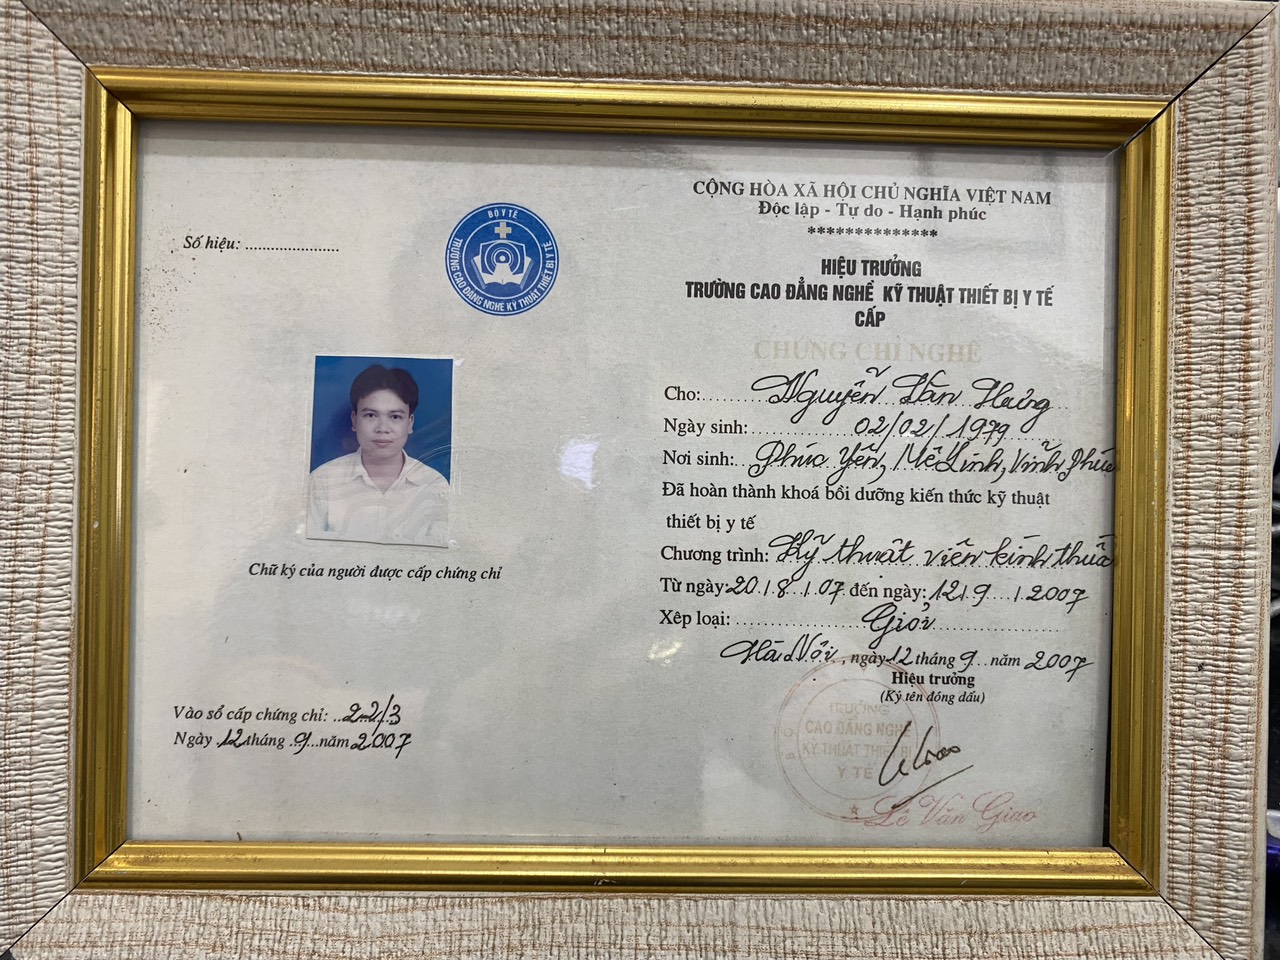 Số hiệu: ......................
BỘ Y TẾ
TRƯỜNG CAO ĐẲNG NGHỀ KỸ THUẬT THIẾT BỊ Y TẾ
Chữ ký của người được cấp chứng chỉ
Vào sổ cấp chứng chỉ: ..22/3
Ngày 12 tháng .9...năm 2007
CỘNG HÒA XÃ HỘI CHỦ NGHĨA VIỆT NAM
Độc lập - Tự do - Hạnh phúc
**************
HIỆU TRƯỞNG
TRƯỜNG CAO ĐẲNG NGHỀ KỸ THUẬT THIẾT BỊ Y TẾ
CẤP
CHỨNG CHỈ NGHỀ
Cho: Nguyễn Văn Hưng
Ngày sinh: 02/02/1979
Nơi sinh: Phúc Yên, Mê Linh, Vĩnh Phúc
Đã hoàn thành khoá bồi dưỡng kiến thức kỹ thuật
thiết bị y tế
Chương trình: Kỹ thuật viên kính thuốc
Từ ngày: 20/8/07 đến ngày: 12/9/2007
Xếp loại: Giỏi
Hà Nội, ngày 12 tháng 9 năm 2007
Hiệu trưởng
(Ký tên đóng dấu)
TRƯỜNG
CAO ĐẲNG NGHỀ
KỸ THUẬT THIẾT BỊ
Y TẾ
Lê Văn Giao